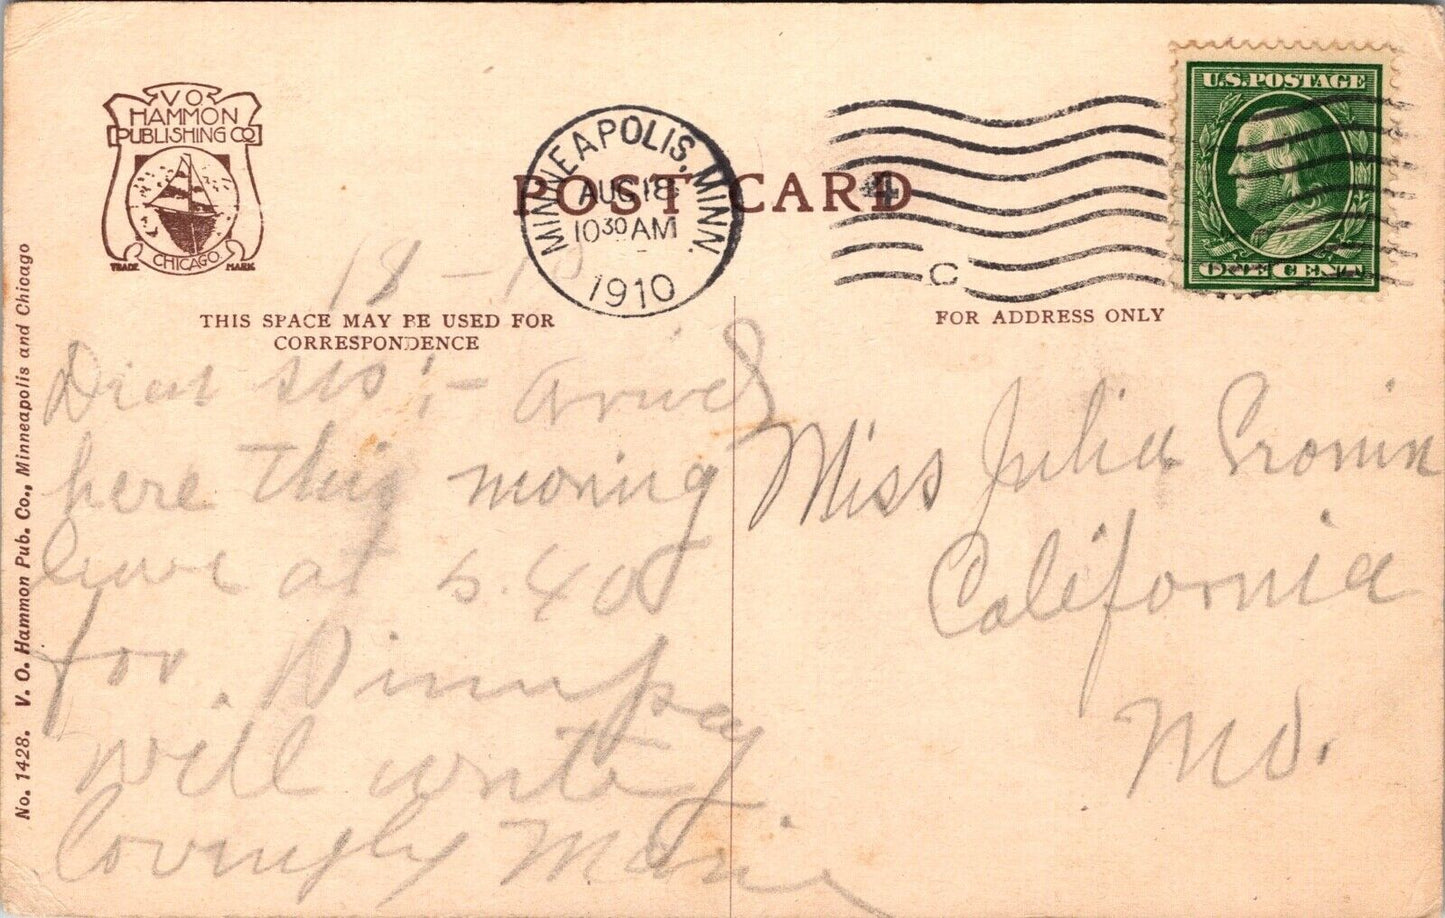 V O
HAMMON
PUBLISHING CO
CHICAGO
TRADE MARK
MINNEAPOLIS, MINN.
AUG 18
10 30 AM
1910
POST CARD
4
C
U.S. POSTAGE
ONE CENT
THIS SPACE MAY BE USED FOR
CORRESPONDENCE
FOR ADDRESS ONLY
18 - 10
Dear sis! - arrived
here this moning
leave at 5.40
for
will write
lovingly Marie
Miss Julia Cronin
California
Mo.
No. 1428. V. O. Hammon Pub. Co., Minneapolis and Chicago